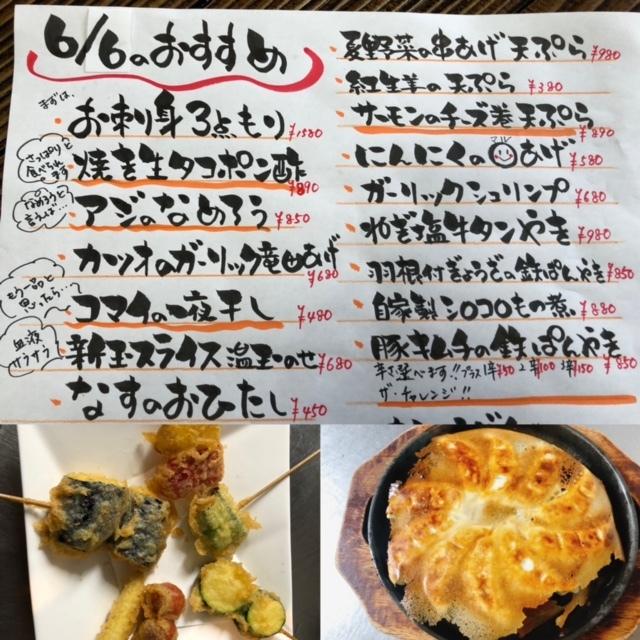 6/6のおすすめ
まずは、
お刺身3点もり ¥1580
さっぱりと
焼き生タコポン酢 ¥890
アジのなめろう ¥850
カツオのガーリック竜田あげ ¥680
もう一品と
思ったら…
コマイの一夜干し ¥480
血液
サラサラ
新玉スライス温玉のせ ¥680
なすのおひたし ¥450
夏野菜の串あげ天ぷら ¥980
紅生姜の天ぷら ¥380
サーモンのチーズ巻天ぷら ¥890
にんにくの マル あげ ¥580
ガーリックシュリンプ ¥680
ねぎ塩牛タンやき ¥980
羽根付ぎょうざの鉄ぱんやき ¥850
自家製シロコロもつ煮 ¥880
豚キムチの鉄ぱんやき ¥850
辛さ選べます!!プラス1辛¥50 2辛¥100 3辛¥150
ザ・チャレンジ!!